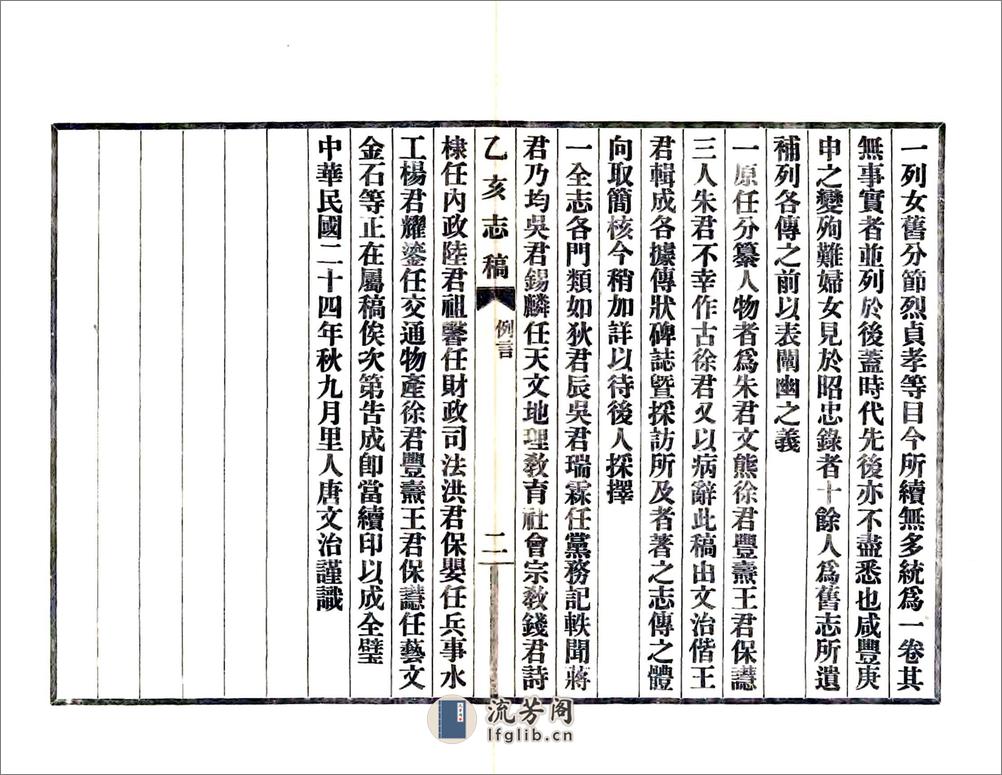 一列女舊分節烈貞孝等目今所續無多統爲一卷其
無事實者並列於後蓋時代先後亦不盡悉也咸豐庚
申之變殉難婦女見於昭忠錄者十餘人爲舊志所遺
補列各傳之前以表闡幽之義
一原任分纂人物者爲朱君文熊徐君豐燾王君保譿
三人朱君不幸作古徐君又以病辭此稿由文治偕王
君輯成各據傳狀碑誌暨採訪所及者著之志傳之體
向取簡核今稍加詳以待後人採擇
一全志各門類如狄君辰吳君瑞霖任黨務記軼聞蔣
君乃均吳君錫麟任天文地理敎育社會宗敎錢君詩
乙亥志稿
例言
二
棣任內政陸君祖馨任財政司法洪君保嬰任兵事水
工楊君耀鎏任交通物產徐君豐燾王君保譿任藝文
金石等正在屬稿俟次第告成卽當續印以成全璧
中華民國二十四年秋九月里人唐文治謹識
流芳阁
lfglib.cn